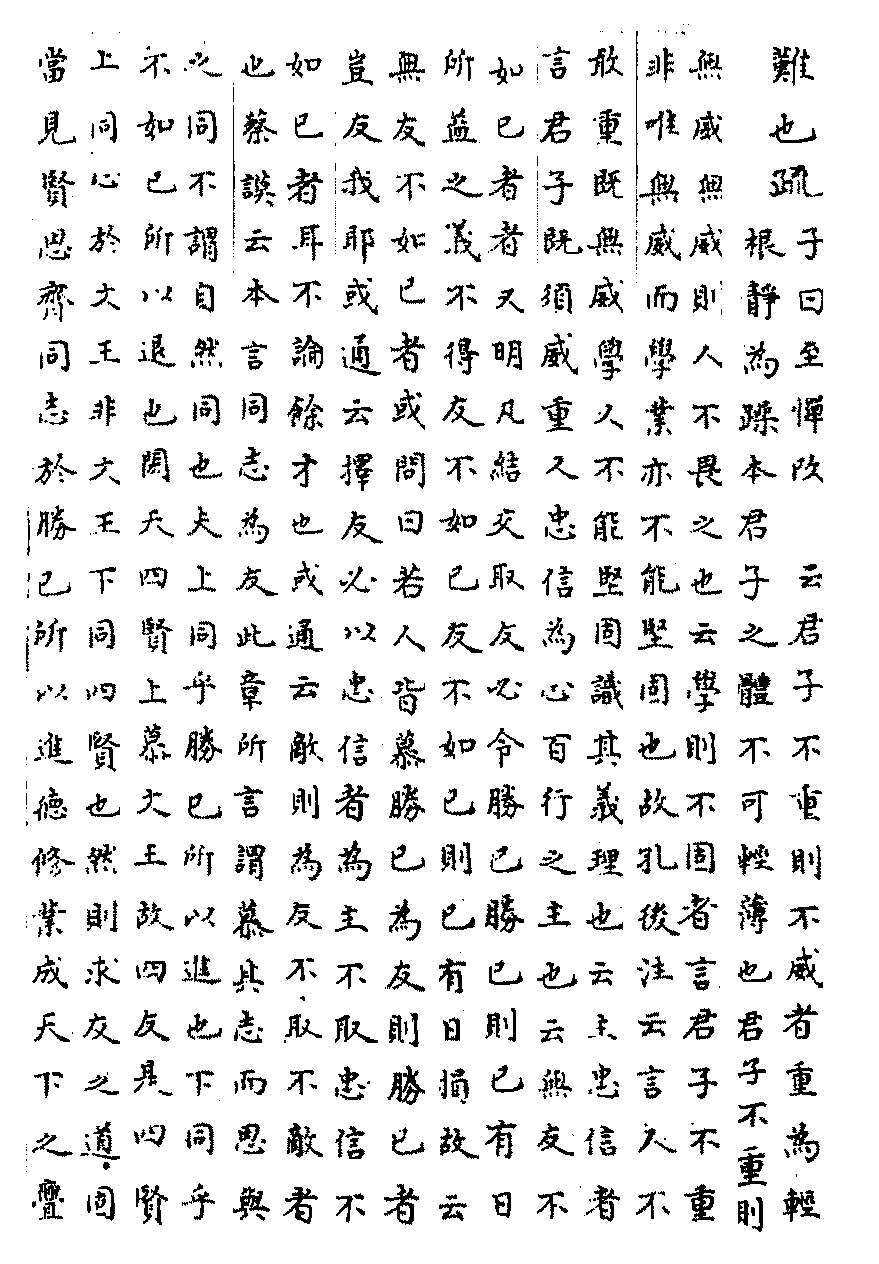 難也疏子曰至憚改　云君子不重則不威者重為輕
根靜為躁本君子之體不可輕薄也君子不重則
無威無威則人不畏之也云學則不固者言君子不重
非唯無威而學業亦不能堅固也故孔後注云言人不
敢重既無威學又不能堅固識其義理也云主忠信者
言君子既須威重又忠信為心百行之主也云無友不
如己者者又明凡結交取友必令勝己勝己則己有日
所益之義不得友不如己友不如己則己有日損故云
無友不如己者或問曰若人皆慕勝己為友則勝己者
豈友我耶或通云擇友必以忠信者為主不取忠信不
如己者耳不論餘才也或通云敵則為友不取不敵者
也蔡謨云本言同志為友此章所言謂慕其志而思與
之同不謂自然同也夫上同乎勝己所以進也下同乎
不如己所以退也閎夭四賢上慕文王故四友是四賢
上同心於文王非文王下同四賢也然則求友之道固
當見賢思齊同志於勝己所以進德修業成天下之亹